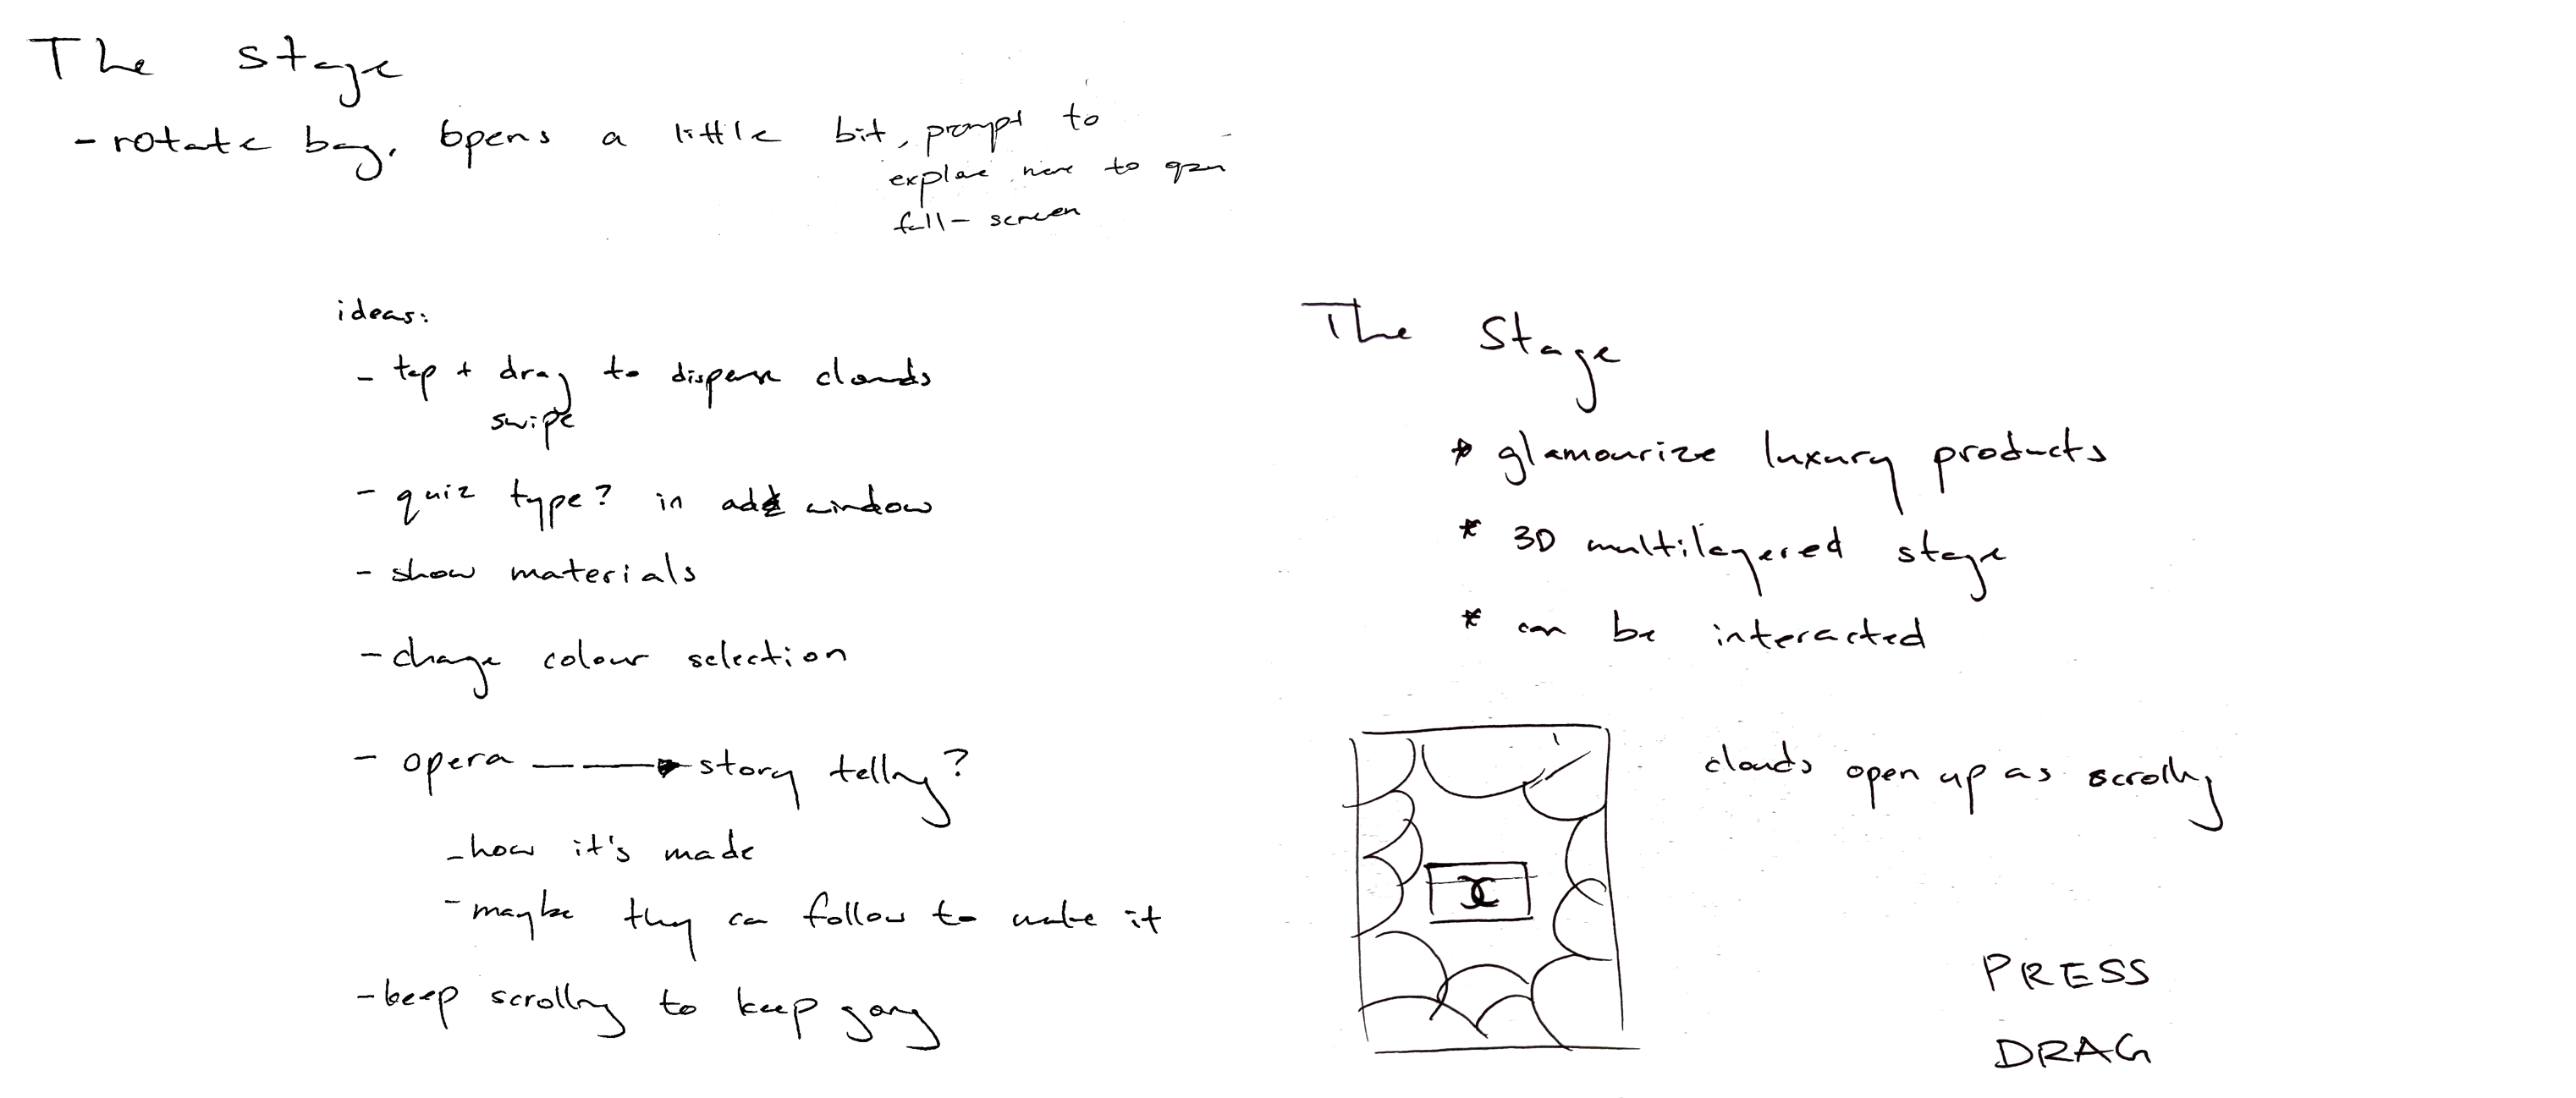 The stage
- rotate bag, opens a little bit, prompt to
explore more to open
full-screen
ideas:
- tap + drag to disperse clouds
swipe
- quiz type? in add window
- show materials
- change colour selection
- opera → story telling?
- how it's made
- maybe they can follow to make it
- keep scrolling to keep going
The Stage
* glamourize luxury products
* 3D multilayered stage
* can be interacted
clouds open up as scrolling
PRESS
DRAG